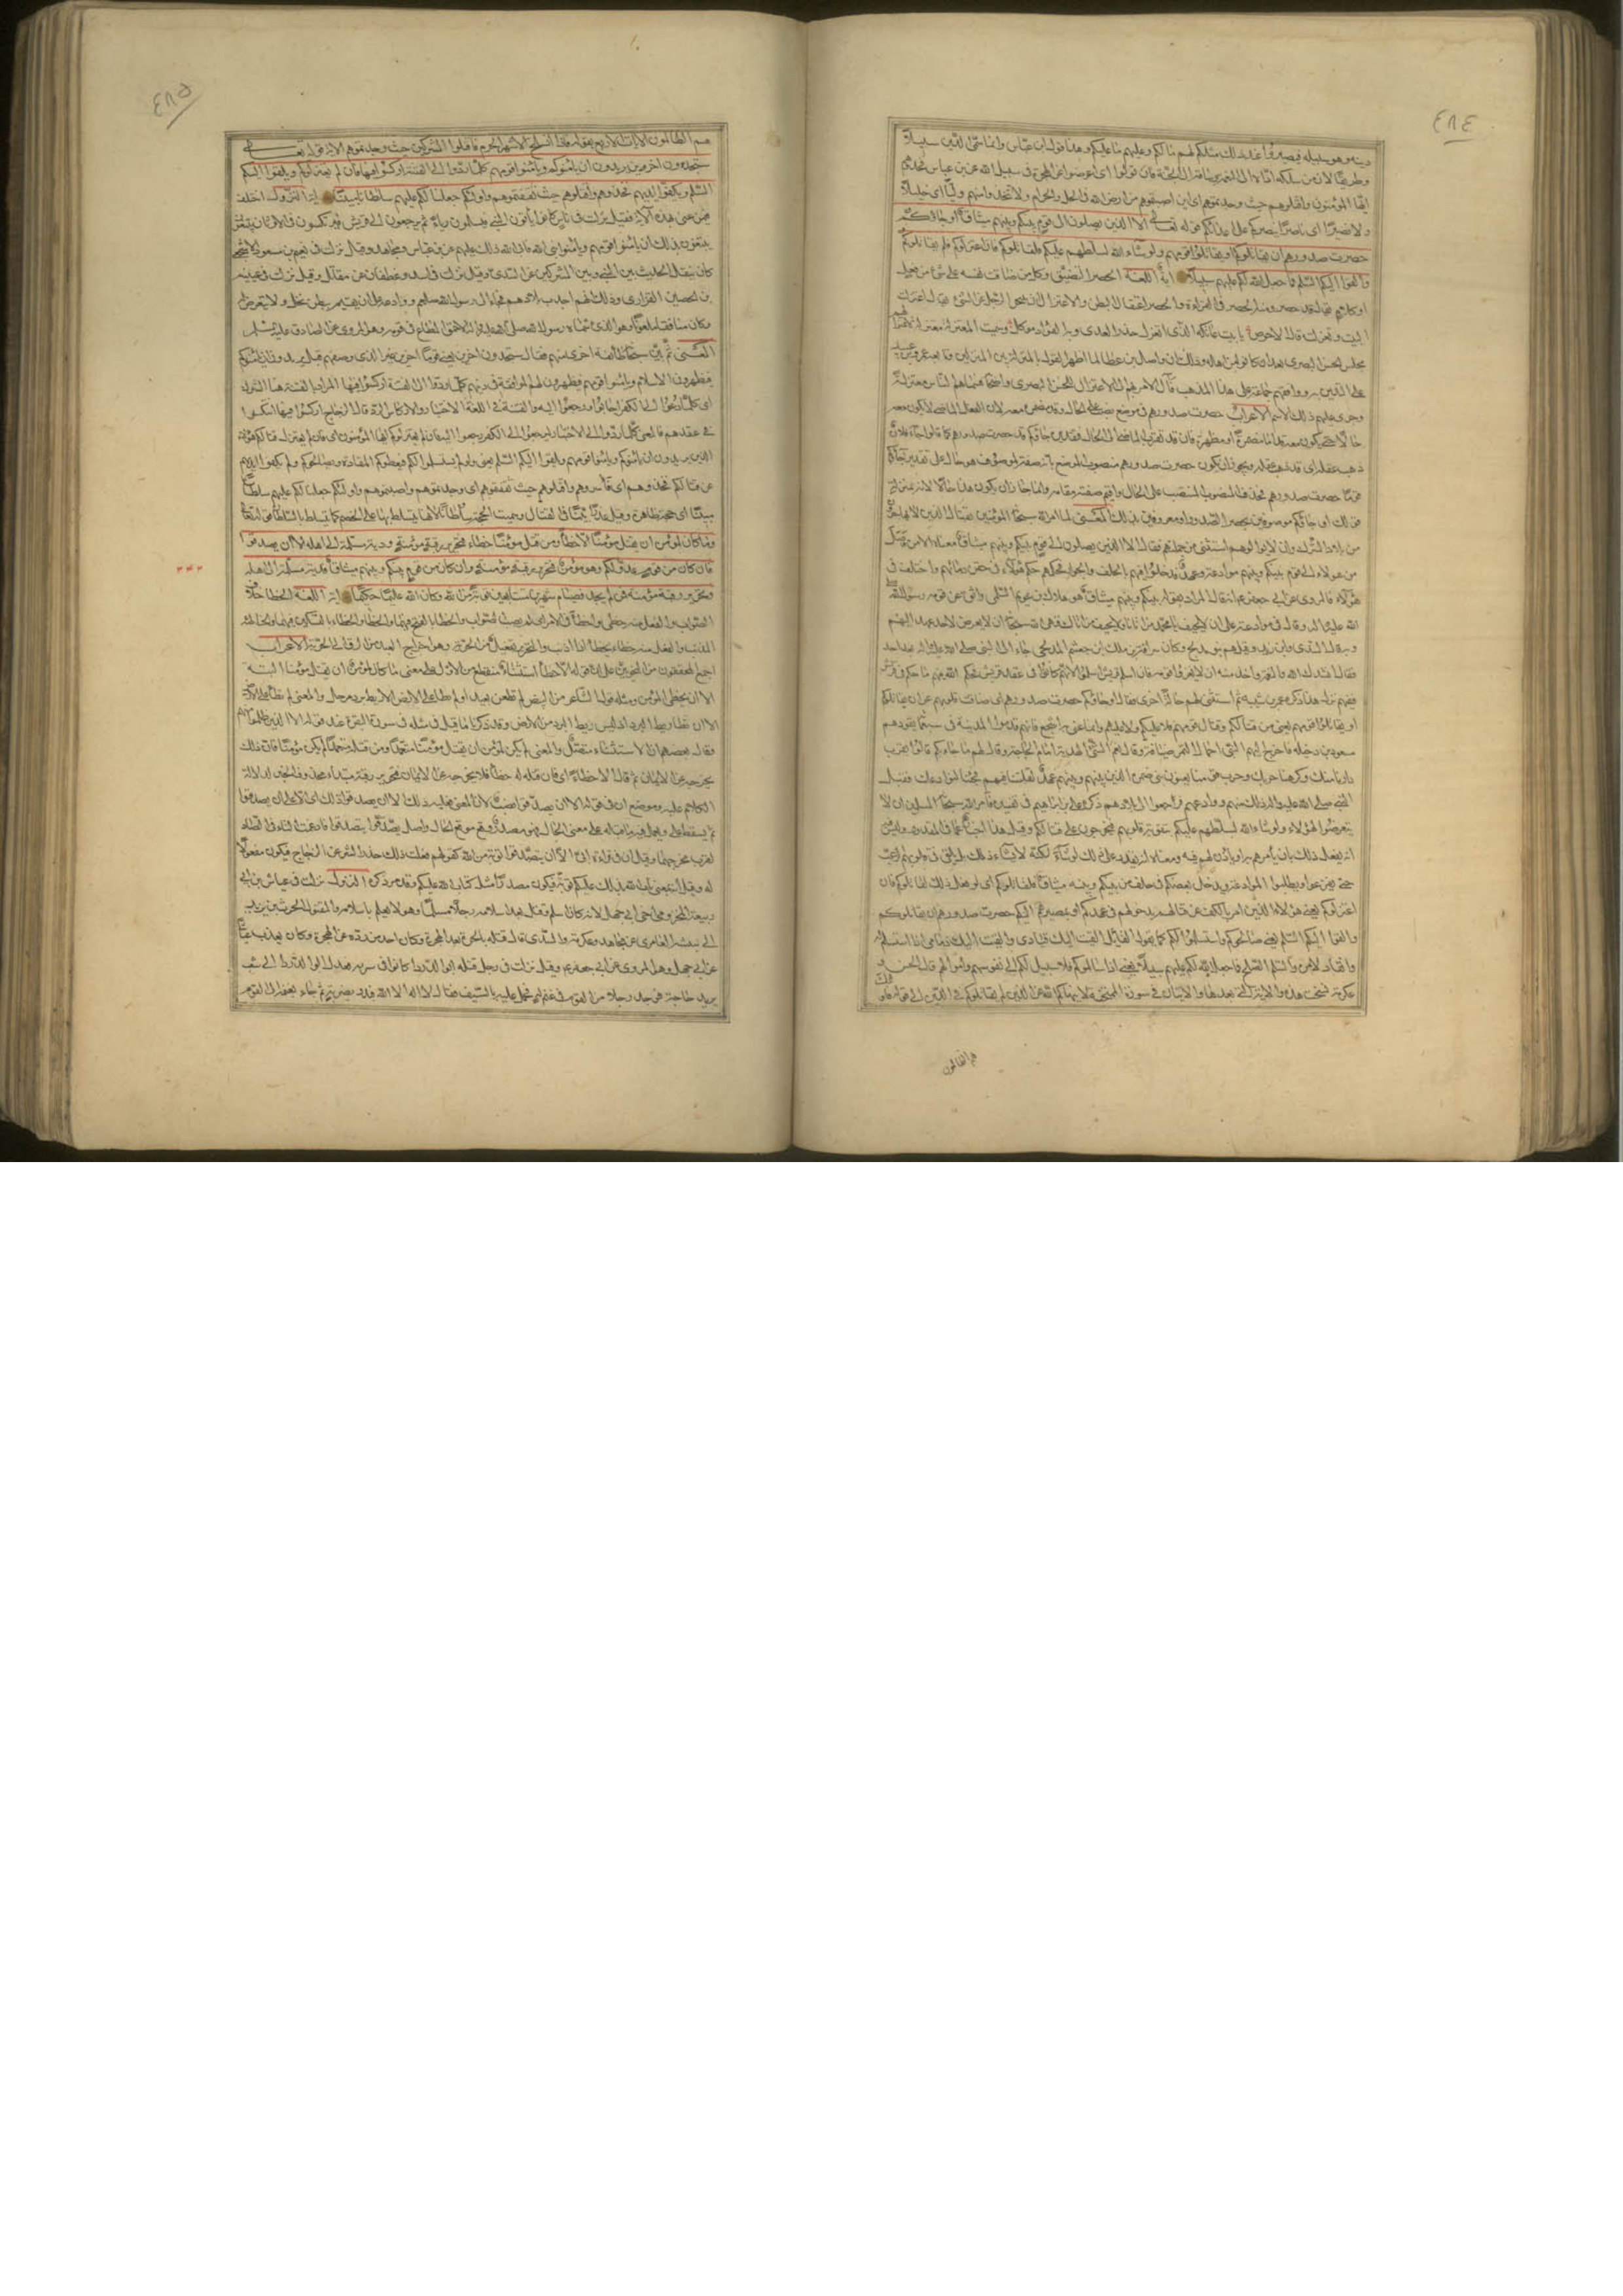 ٤٨٤
دينه وهو سبيله فيصيروا عند ذلك مثلكم لهم ما لكم وعليهم ما عليكم وهذا قول ابن عباس وانما سمي الدين سبيلا
وطريقا لان من سلكه اداه الى النعيم وساقه الى الجنة فان تولوا اى اعرضوا عن الهجرة في سبيل الله عن ابن عباس فخذوهم
ايها المؤمنون واقتلوهم حيث وجدتموهم اى اين اصبتموهم من ارض الله في الحل والحرم ولا تتخذوا منهم وليا اى خليلا
ولا نصيرا اى ناصرا ينصركم على اعدائكم قوله تعالى الا الذين يصلون الى قوم بينكم وبينهم ميثاق او جاؤكم
حصرت صدورهم ان يقاتلوكم او يقاتلوا قومهم ولو شاء الله لسلطهم عليكم فلقاتلوكم فان اعتزلوكم فلم يقاتلوكم
والقوا اليكم السلم فما جعل الله لكم عليهم سبيلا اية اللغة الحصر الضيق وكل من ضاق نفسه على شئ من فعل
او كلام يقال قد حصر ومنه الحصر في القراءة والحصر اعتقال البطن والاعتزال ان يتنحى الرجل عن الشئ يقال اعتزلت
البيت وتعزلت قال الاحوص يا بيت عاتكة الذى اتعزل حذر العدى وبه الفؤاد موكل وسميت المعتزلة معتزلة
مجلس الحسن البصرى بعد ان كانوا من اهله وذلك ان واصل بن عطا لما اظهر القول بالمنزلة بين المنزلتين وتابعه عمرو بن عبيد
على التدين به ووافقهم جماعة على هذا المذهب فآل الامر بهم الى الاعتزال للحسن البصرى واصحابه فسماهم الناس معتزلة
وجرى عليهم ذلك الاسم الاعراب حصرت صدورهم في موضع نصب على الحال وقد مضمر معه لان الفعل الماضي لا يكون
حالا حتى يكون معه قد اما مضمرة او مظهرة فان قد تقرب الماضي من الحال فتقديره جاؤكم قد حصرت صدورهم كما قالوا جاء فلان
ذهب عقله اى قد ذهب عقله ويجوز ان يكون حصرت صدورهم منصوب الموضع بانه صفة لموصوف هو حال على تقدير جاؤكم
قوما حصرت صدورهم فحذف المنصوب المنتصب على الحال واقيم صفته مقامه وانما جاز ان يكون هذا حالا لانه بمنزلة
قولك او جاؤكم موصوفين بحصر الصدور او معروفين بذلك المعنى لما امر الله سبحانه المؤمنين بقتال الذين لا يهاجرون
من بلاد الشرك وان لا يوالوهم استثنى من جملتهم فقال الا الذين يصلون الى قوم بينكم وبينهم ميثاق معناه الا من وصل
من هؤلاء الى قوم بينكم وبينهم موادعة وعهد فدخلوا فيهم بالحلف والجوار فحكمهم حكم هؤلاء في حقن دمائهم واختلف في
هؤلاء فالمروى عن ابي جعفر انه قال المراد بقوله بينكم وبينهم ميثاق هو هلال بن عويم السلمى واثق عن قومه رسول الله
فقال انشدك الله والنعمة واخذ منه ان لا يغزوا قومه فان اسلم قريش اسلموا لانهم كانوا في عقد قريش فحكم الله فيهم ما حكم في قريش
ففيهم نزل هذا ذكره عمر بن شيبة ثم استثنى لهم حالة اخرى فقال او جاؤكم حصرت صدورهم اى ضاقت قلوبهم عن ان يقاتلوكم
او يقاتلوا قومهم يعنى من قتالكم وقتال قومهم فلا عليكم ولا عليهم وانما عنى به اشجع فانهم قدموا المدينة في سبعمائة يقودهم
مسعود بن دخيلة فاخرج اليهم النبي احمال التمر ضيافة وقال نعم الشئ الهدية امام الحاجة وقال لهم ما جاء بكم قالوا لقرب
دارنا منك وكرهنا حربك وحرب قومنا يعنون بنى ضمرة الذين بينهم وبينهم عهد لقلتنا فيهم فجئنا لنوادعك فقبل
النبي صلى الله عليه واله ذلك منهم ووادعهم فرجعوا الى بلادهم ذكره على بن ابراهيم في تفسيره فامر الله سبحانه المسلمين ان لا
يتعرضوا لهؤلاء ولو شاء الله لسلطهم عليكم بتقوية قلوبهم فيجترؤن على قتالكم وقيل هذا اخبار عما في المقدور وليس
انه يفعل ذلك بان يأمرهم به او يأذن لهم فيه ومعناه انه يقدر على ذلك لو شاء لكنه لا يشاء ذلك بل يلقى في قلوبهم الرعب
حتى يفزعوا ويطلبوا الموادعة ويدخل بعضهم في حلف من بينكم وبينه ميثاق فلقاتلوكم اى لو فعل ذلك لقاتلوكم فان
اعتزلوكم يعنى هؤلاء الذين امر بالكف عن قتالهم بدخولهم في عهدكم او بمصيرهم اليكم حصرت صدورهم ان يقاتلوكم
والقوا اليكم السلم يعنى صالحوكم واستسلموا لكم كما يقول القائل القيت اليك قيادى والقيت اليك زمامى اذا استسلم له
وانقاد لامره والسلم الصلح فما جعل الله لكم عليهم سبيلا يعنى اذا سالموكم فلا سبيل لكم الى نفوسهم واموالهم قال الحسن و
عكرمة نسخت هذه الاية والتى بعدها والايتان في سورة الممتحنة لا ينهاكم الله عن الذين لم يقاتلوكم في الدين الى قوله فاولئك
هم الظالمون
٤٨٥
هم الظالمون الايات الاربع بقوله فاذا انسلخ الاشهر الحرم فاقتلوا المشركين حيث وجدتموهم الاية قوله تعالى
ستجدون آخرين يريدون ان يأمنوكم ويأمنوا قومهم كلما ردوا الى الفتنة اركسوا فيها فان لم يعتزلوكم ويلقوا اليكم
السلم ويكفوا ايديهم فخذوهم واقتلوهم حيث ثقفتموهم واولئكم جعلنا لكم عليهم سلطانا مبينا اية النزول اختلف
فيمن عنى بهذه الاية فقيل نزلت في ناس كانوا يأتون النبي فيسلمون رياء ثم يرجعون الى قريش فيرتكسون في الاوثان
يبتغون بذلك ان يأمنوا قومهم ويأمنوا نبى الله فابى الله ذلك عليهم عن ابن عباس ومجاهد وقيل نزلت في نعيم بن مسعود الاشجعي
كان ينقل الحديث بين النبي وبين المشركين عن السدى وقيل نزلت في اسد وغطفان عن مقاتل وقيل نزلت في عيينة
بن الحصين الفزارى وذلك انهم اجدبت بلادهم فجاء الى رسول الله صلعم ووادعه على ان يقيم ببطن نخل ولا يتعرض له
وكان منافقا ملعونا وهو الذى سماه رسول الله صلى الله عليه واله الاحمق المطاع في قومه وهو المروى عن الصادق عليه السلم
المعنى ثم بين سبحانه طائفة اخرى منهم فقال ستجدون آخرين يعنى قوما آخرين غير الذى وصفهم قبل يريدون ان يأمنوكم
فيظهرون الاسلام ويأمنوا قومهم فيظهرون لهم الموافقة في دينهم كلما ردوا الى الفتنة اركسوا فيها المراد بالفتنة هنا الشرك
اى كلما دعوا الى الكفر اجابوا ورجعوا اليه والفتنة في اللغة الاختبار والاركاس الرد قال الزجاج اركسوا فيها انتكسوا
في عقدهم فالمعنى كلما ردوا الى الاختبار ليرجعوا الى الكفر رجعوا اليه فان لم يعتزلوكم ايها المؤمنون اى فان لم يعتزل قتالكم هؤلاء
الذين يريدون ان يأمنوكم ويأمنوا قومهم ويلقوا اليكم السلم يعنى ولم يستسلموا لكم فيعطوكم المقادة ويصالحوكم ولم يكفوا ايديهم
عن قتالكم فخذوهم اى فأسروهم واقتلوهم حيث ثقفتموهم اى وجدتموهم واصبتموهم واولئكم جعلنا لكم عليهم سلطانا
مبينا اى حجة ظاهرة وقيل عذرا بينا في القتال وسميت الحجة سلطانا لانها يتسلط بها على الخصم كما يتسلط بالسلطان قوله تعالى
وما كان لمؤمن ان يقتل مؤمنا الا خطأ ومن قتل مؤمنا خطاء فتحرير رقبة مؤمنة ودية مسلمة الى اهله الا ان يصدقوا
فان كان من قوم عدو لكم وهو مؤمن فتحرير رقبة مؤمنة وان كان من قوم بينكم وبينهم ميثاق فدية مسلمة الى اهله
وتحرير رقبة مؤمنة فمن لم يجد فصيام شهرين متتابعين توبة من الله وكان الله عليما حكيما اية اللغة الخطا خلاف
الصواب والفعل منه
المذنب والفعل منه خطاء يخطأ اذا اذنب والتحرير تفعيل من الحرية وهو اخراج العبد من الرق الى الحرية الاعراب
اجمع المحققون من النحويين على ان قوله الا خطأ استثناء منقطع من الاول على معنى ما كان لمؤمن ان يقتل مؤمنا البتة
الا ان يخطى المؤمن ومثله قول الشاعر من البيض لم تظعن بعيدا ولم تطأ على الارض الا ريط برد مرحل والمعنى لم تطأ على الارض
الا ان تطأ ريط البرد اذ ليس ريط البرد من الارض وقد ذكرنا ما قيل في مثله في سورة البقرة عند قوله الا الذين ظلموا منهم
وقال بعضهم ان الاستثناء متصل والمعنى لم يكن لمؤمن ان يقتل مؤمنا متعمدا ومن قتله متعمدا لم يكن مؤمنا فان ذلك
يخرجه من الايمان ثم قال الا خطأ اى فان قتله له خطأ لا يخرجه عن الايمان فتحرير رقبة مبتداء محذوف الخبر لدلالة
الكلام عليه وموضع ان في قوله الا ان يصدقوا نصب لان المعنى فعليه ذلك الا ان يصدقوا
لقرب مخرجيهما وقيل ان في قراءة ابى الا ان يتصدقوا توبة من الله كقولهم فعلت ذلك حذر الشر عن الزجاج فيكون مفعولا
له وقيل انه بمعنى تاب الله بذلك عليكم توبة فيكون مصدرا مثل كتاب الله عليكم وقد مر ذكره النزول نزلت في عياش بن ابي
ربيعة المخزومي اخى ابى جهل لانه كان اسلم وقتل بعد اسلامه رجلا مسلما وهو لا يعلم باسلامه والمقتول الحرث بن يزيد
بن ابى نبيشة العامرى عن مجاهد وعكرمة والسدى قال قتله بالحرة بعد الهجرة وكان احد من رده عن الهجرة وكان يعذب عياشا
مع ابى جهل وهو المروى عن ابي جعفر وقيل نزلت في رجل قتله ابو الدرداء كانوا في سرية فعدل ابو الدرداء الى شعب
يريد حاجة فوجد رجلا من القوم في غنم له فحمل عليه بالسيف فقال لا اله الا الله فبدر بضربه ثم جاء بغنمه الى القوم